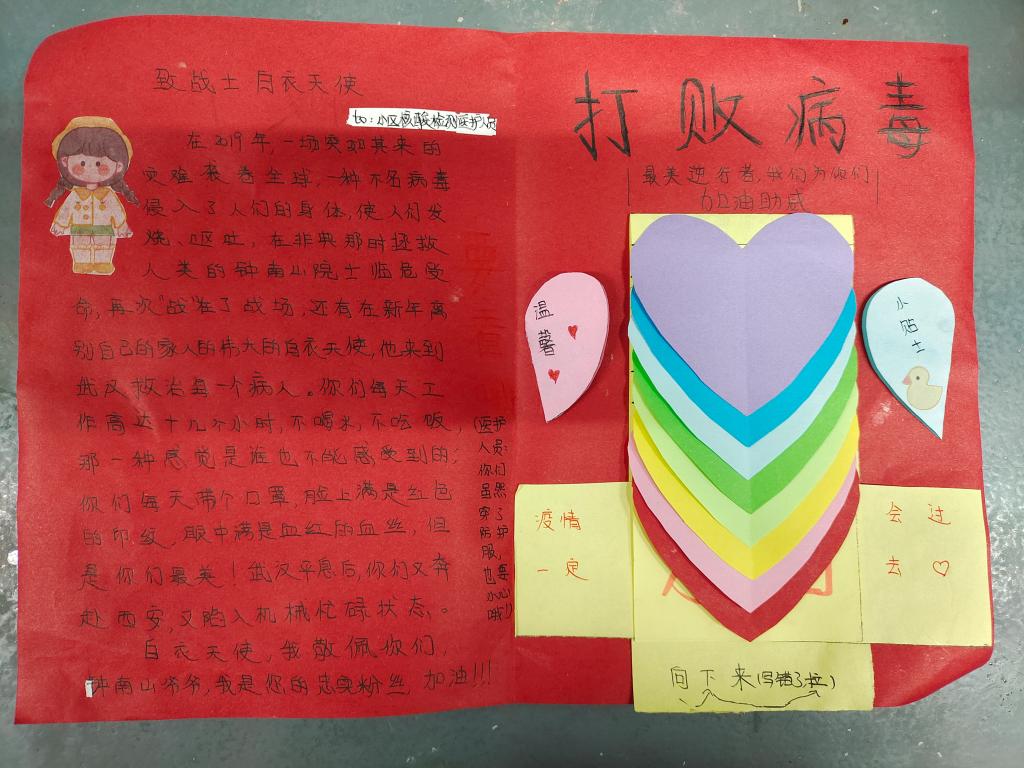 致战士白衣天使
to:小区核酸检测医护人员
在2019年,一场突如其来的
灾难袭卷全球,一种不名病毒
侵入了人们的身体,使人们发
烧、呕吐,在非典那时拯救
人类的钟南山院士临危受
命,再次"战"在了战场,还有在新年离
别自己的家人的伟大的白衣天使,他来到
武汉救治每一个病人。你们每天工
作高达十几个小时,不喝水,不吃饭,
那一种感觉是谁也不能感受到的;
你们每天带个口罩,脸上满是红色
的印纹,眼中满是血红的血丝,但
是你们最美!武汉平息后,你们又奔
赴西安,又陷入机械忙碌状态。
白衣天使,我敬佩你们,
钟南山爷爷,我是您的忠实粉丝 加油!!!
(医护
人员:
你们
虽然
穿了
防护
服,
也要
小心
哦!)
打败病毒
最美逆行者,我们为你们
加油助威
温馨
小贴士
疫情
一定
会过
去
向下来(写错了拉)